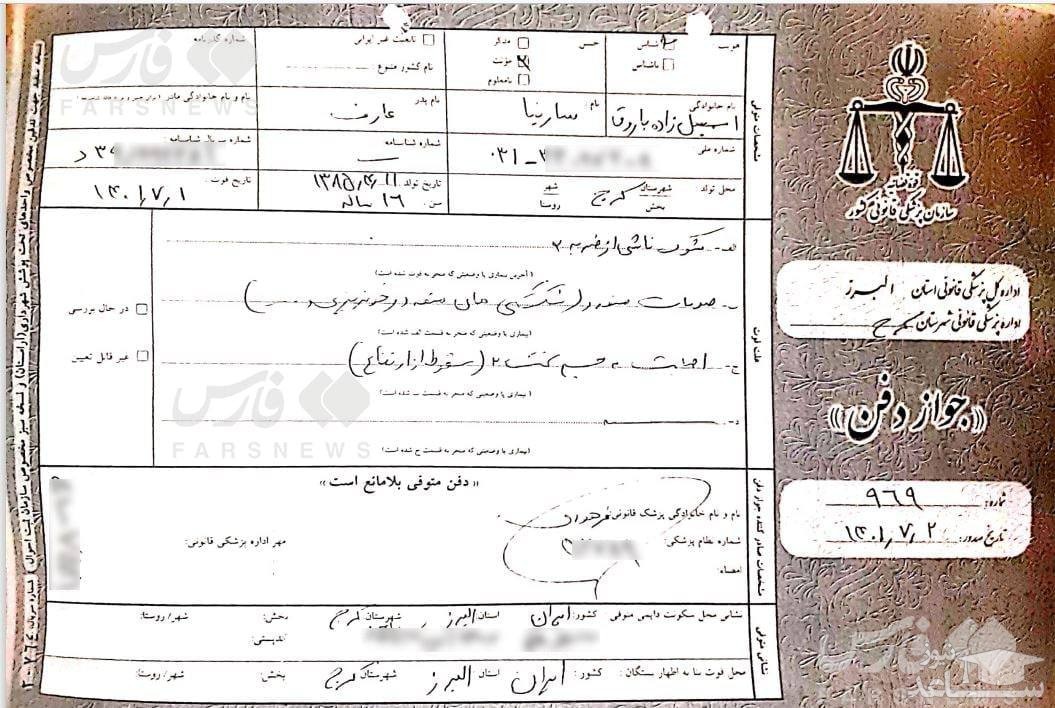 قوه قضائیه
سازمان پزشکی قانونی کشور
اداره کل پزشکی قانونی استان البرز
اداره پزشکی قانونی شهرستان کرج
«جواز دفن»
شماره: ۹۶۹
تاریخ صدور: ۱۴۰۱/۷/۲
مشخصات متوفی
هویت شناس ناشناس
جنس مذکر مونث نامعلوم
تابعیت غیر ایرانی
نام کشور متبوع:
شماره گذرنامه
نام خانوادگی اسمعیل زاده باروق
نام: سارینا
نام پدر عارف
نام و نام خانوادگی مادر
شماره ملی: ۰۳۱-۳
شماره شناسنامه
محل تولد: شهرستان کرج بخش شهر روستا
تاریخ تولد ۱۳۸۵/۴/۱۱
سن: ۱۶ ساله
تاریخ فوت: ۱۴۰۱/۷/۱
علت فوت
ناشی از ضربه
(آخرین بیماری یا وضعیتی که منجر به فوت شده است)
صدمات متعدد (شکستگی های متعدد و خونریزی)
(بیماری یا وضعیتی که منجر به قسمت الف شده است)
ج- اصابت به جسم سخت (سقوط از ارتفاع)
(بیماری یا وضعیتی که منجر به قسمت ب شده است)
د-
(بیماری یا وضعیتی که منجر به قسمت ج شده است)
در حال بررسی
غیر قابل تعیین
مشخصات صادر کننده جواز دفن
«دفن متوفی بلامانع است»
نام و نام خانوادگی پزشک قانونی:
شماره نظام پزشکی:
امضاء:
مهر اداره پزشکی قانونی:
نشانی متوفی
نشانی محل سکونت دایمی متوفی کشور: ایران استان البرز شهرستان کرج بخش: شهر/روستا:
کدپستی:
محل فوت بنا به اظهار بستگان: کشور: ایران استان البرز شهرستان کرج بخش: شهر/روستا:
فارس
FARSNEWS
فارس
FARSNEWS
فارس